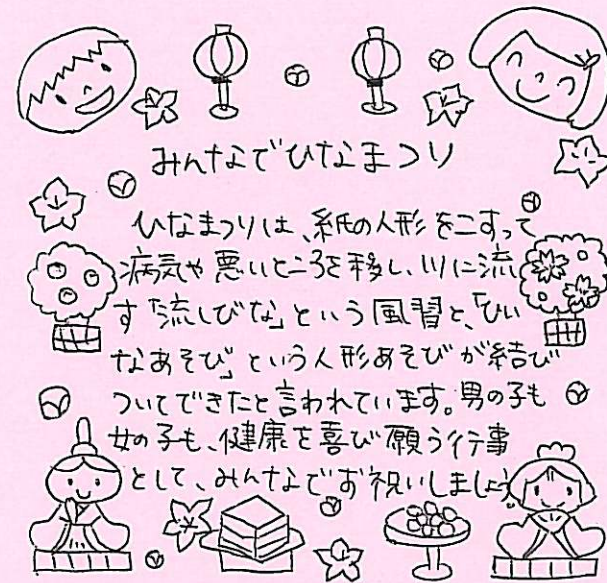 みんなでひなまつり
ひなまつりは、紙の人形をこすって
病気や悪いところを移し、川に流
す「流しびな」という風習と、「ひい
なあそび」という人形あそびが結び
ついてできたと言われています。男の子も
女の子も、健康を喜び願う行事
として、みんなでお祝いしましょう。